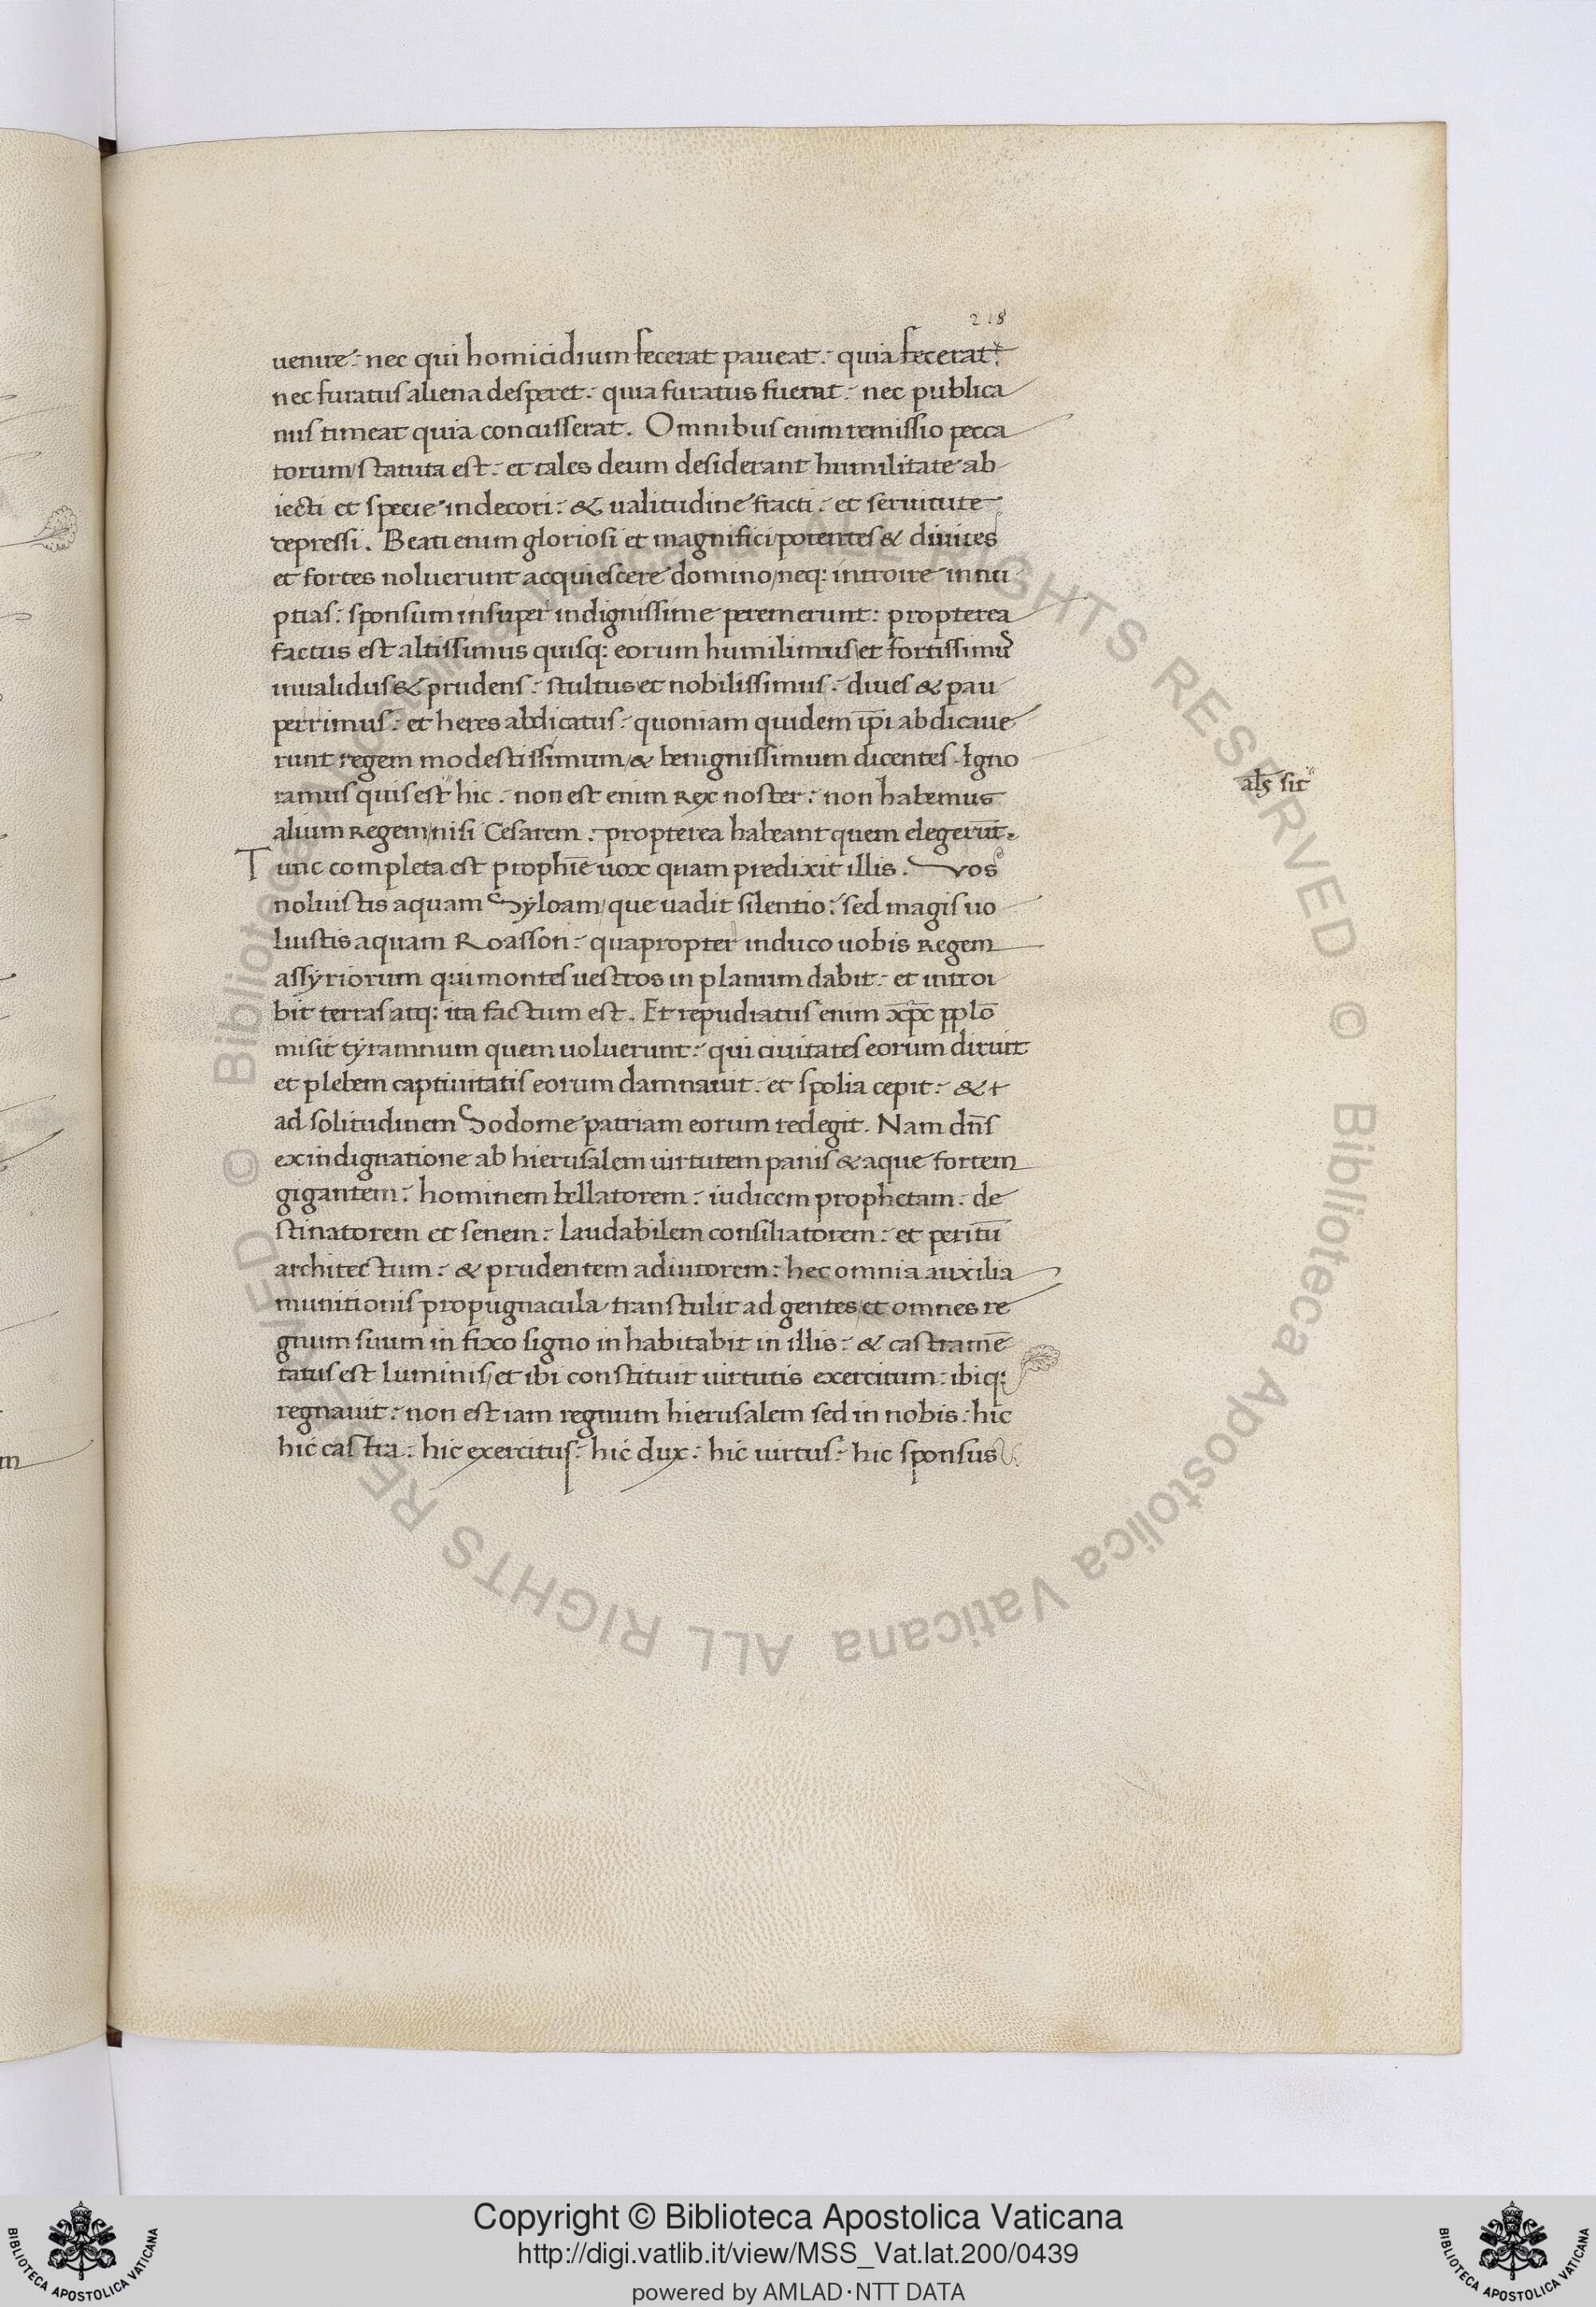 218
uenire:- nec qui homicidium fecerat paueat:- quia fecerat:
nec furatus aliena desperet:- quia furatus fuerat:- nec publica
nus timeat quia concusserat. Omnibus enim remissio pecca
torum/ statuta est:- et tales deum desiderant humilitate ab
iecti et specie indecori:- & ualitudine fracti:- et seruitute
depressi. Beati enim gloriosi et magnifici/ potentes & diuites
et fortes noluerunt acquiescere domino/ neq: introire in nu
ptias: sponsum insuper indignissime peremerunt: propterea
factus est altissimus quisq: eorum humilimus/ et fortissimus
inualidus & prudens:- stultus et nobilissimus:- diues & pau
perrimus:- et heres abdicatus:- quoniam quidem ip̄i abdicaue
runt regem modestissimum/ & benignissimum dicentes. Igno
ramus quis est hic:- non est enim Rex noster:- non habemus
alium Regem/ nisi Cesarem:- propterea habeant quem elegerūt.
Tunc completa est prophīe uox quam predixit illis. Vos
noluistis aquam Syloam/ que uadit silentio: sed magis uo
luistis aquam Roasson:- quapropter induco uobis Regem
assyriorum qui montes uestros in planum dabit:- et introi
bit terras atq: ita factum est. Et repudiatus enim xp̄c pplō
misit tyramnum quem uoluerunt:- qui ciuitates eorum diruit
et plebem captiuitatis eorum damnauit:- et spolia cepit:- &
ad solitudinem Sodome patriam eorum redegit. Nam dn̄s
ex indignatione ab hierusalem uirtutem panis & aque fortem
gigantem:- hominem bellatorem:- iudicem prophetam:- de
stinatorem et senem:- laudabilem consiliatorem:- et peritū
architectum:- & prudentem adiutorem: hec omnia auxilia
munitionis propugnacula transtulit ad gentes/ et omnes re
gnum suum in fixo signo in habitabit in illis:- & castramē
tatus est luminis/ et ibi constituit uirtutis exercitum:- ibiq:
regnauit:- non est iam regnum hierusalem sed in nobis:- hic
hic castra:- hic exercitus:- hic dux:- hic uirtus:- hic sponsus
sit
Copyright © Biblioteca Apostolica Vaticana
http://digi.vatlib.it/view/MSS_Vat.lat.200/0439
powered by AMLAD·NTT DATA
BIBLIOTECA APOSTOLICA VATICANA
BIBLIOTECA APOSTOLICA VATICANA
© Biblioteca Apostolica Vaticana ALL RIGHTS RESERVED
© Biblioteca Apostolica Vaticana ALL RIGHTS RESERVED